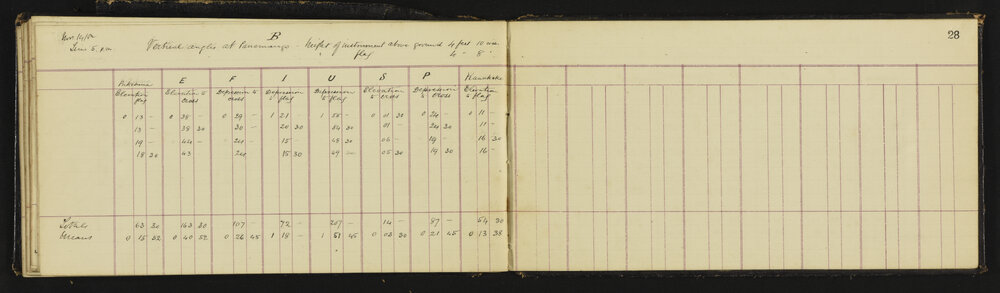 28
B
Time 5. p.m.
Vertical angles at Panemango - Height of instrument above ground 4 feet 10 ins
" flag 4 " 8 "
E F I U S P
Elevation flag Elevation to cross Depression to cross Depression to flag Depression to flag Elevation to cross Depression to cross Elevation to flag
0 13 - 0 38 - 0 29 - 1 21 - 1 55 - 0 01 30 0 24 - 0 11 -
13 - 38 30 30 - 20 30 54 30 01 - 24 30 11 -
19 - 44 - 24 - 15 - 48 30 06 19 - 16 30
18 30 43 24 15 30 49 - 05 30 19 30 16 -
Totals 63 30 163 30 107 - 72 - 207 - 14 - 87 - 54 30
Means 0 15 52 0 40 52 0 26 45 1 18 - 1 51 45 0 03 30 0 21 45 0 13 38